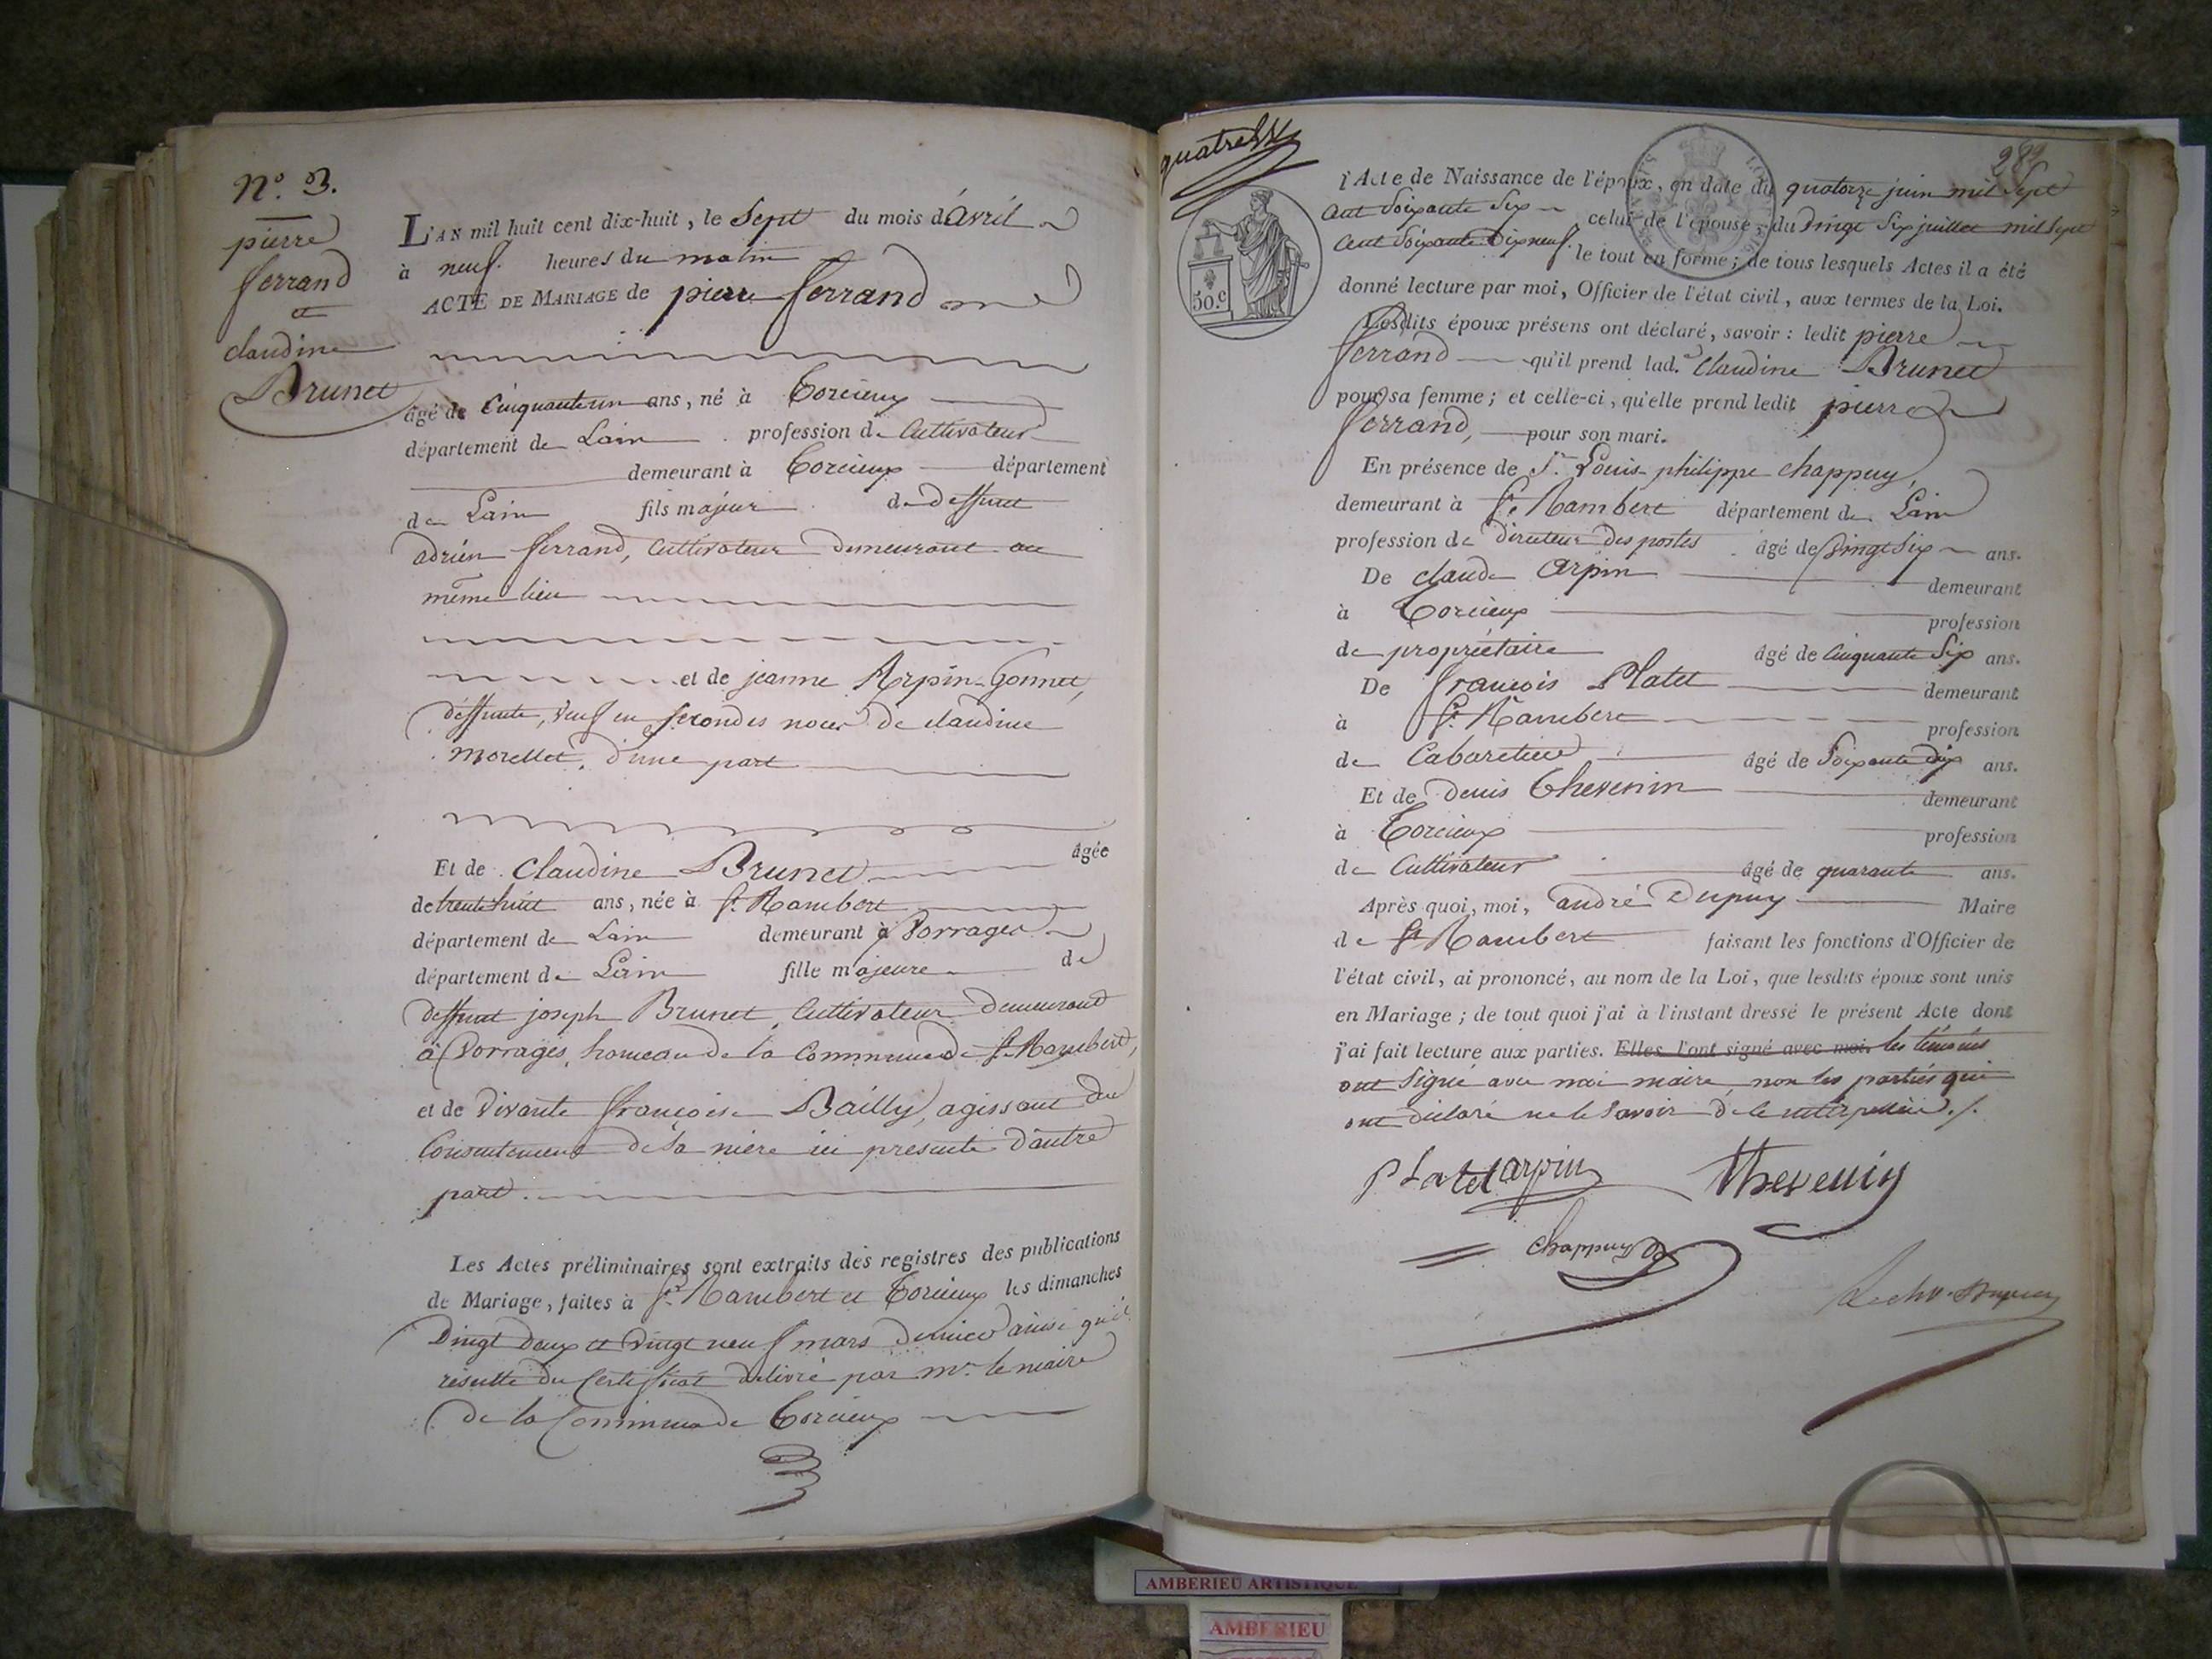 N.º 3.
pierre
ferrand
et
claudine
Brunet
L'AN mil huit cent dix-huit, le Sept du mois d'avril
à neuf heures du matin
ACTE DE MARIAGE de pierre ferrand
âgé de Cinquante un ans, né à Torcieux
département de Lain profession de Cultivateur
demeurant à Torcieux département
de Lain fils majeur de deffunt
adrien ferrand, Cultivateur demeurant au
même lieu
et de jeanne Arpin-Gonnet,
deffunte, veuf en secondes noces de claudine
morellet, d'une part
Et de Claudine Brunet âgée
de trente huit ans, née à St. Rambert
département de Lain demeurant à Vorrages
département de Lain fille majeure de
deffunt joseph Brunet, Cultivateur demeurant
à Vorrages, hameau de la Commune de St. Rambert,
et de vivante françoise Bailly, agissant du
Consentement de sa mère ici presente d'autre
part.
Les Actes préliminaires sont extraits des registres des publications
de Mariage, faites à St. Rambert et Torcieux les dimanches
vingt deux et vingt neuf mars dernier ainsi qu'il
résulte du Certificat délivré par mr. le maire
de la Commune de Torcieux
quatre
289
50.c
l'Acte de Naissance de l'époux, en date du quatorze juin mil Sept
cent Soixante Six celui de l'épouse du vingt Six juillet mil Sept
cent Soixante Dix neuf. le tout en forme; de tous lesquels Actes il a été
donné lecture par moi, Officier de l'état civil, aux termes de la Loi.
Lesdits époux présens ont déclaré, savoir: ledit pierre
ferrand qu'il prend lad.e Claudine Brunet
pour sa femme; et celle-ci, qu'elle prend ledit pierre
ferrand, pour son mari.
En présence de Sr. Louis-philippe Chappuy,
demeurant à St. Rambert département de Lain
profession de directeur des postes âgé de vingt Six ans.
De claude Arpin demeurant
à Torcieux profession
de propriétaire âgé de Cinquante Six ans.
De françois Platet demeurant
à St. Rambert profession
de Cabaretier âgé de Soixante dix ans.
Et de Denis Thevenin demeurant
à Torcieux profession
de Cultivateur âgé de quarante ans.
Après quoi, moi, andré Dupuy Maire
de St Rambert faisant les fonctions d'Officier de
l'état civil, ai prononcé, au nom de la Loi, que lesdits époux sont unis
en Mariage; de tout quoi j'ai à l'instant dressé le présent Acte dont
j'ai fait lecture aux parties. Elles l'ont signé avec moi. les témoins
ont Signé avec moi maire, non les parties qui
ont déclaré ne le savoir de ce interpellées./.
Platet arpin Thevenin
Chappuy
Dupuy
AMBERIEU ARTISTIQUE
AMBERIEU